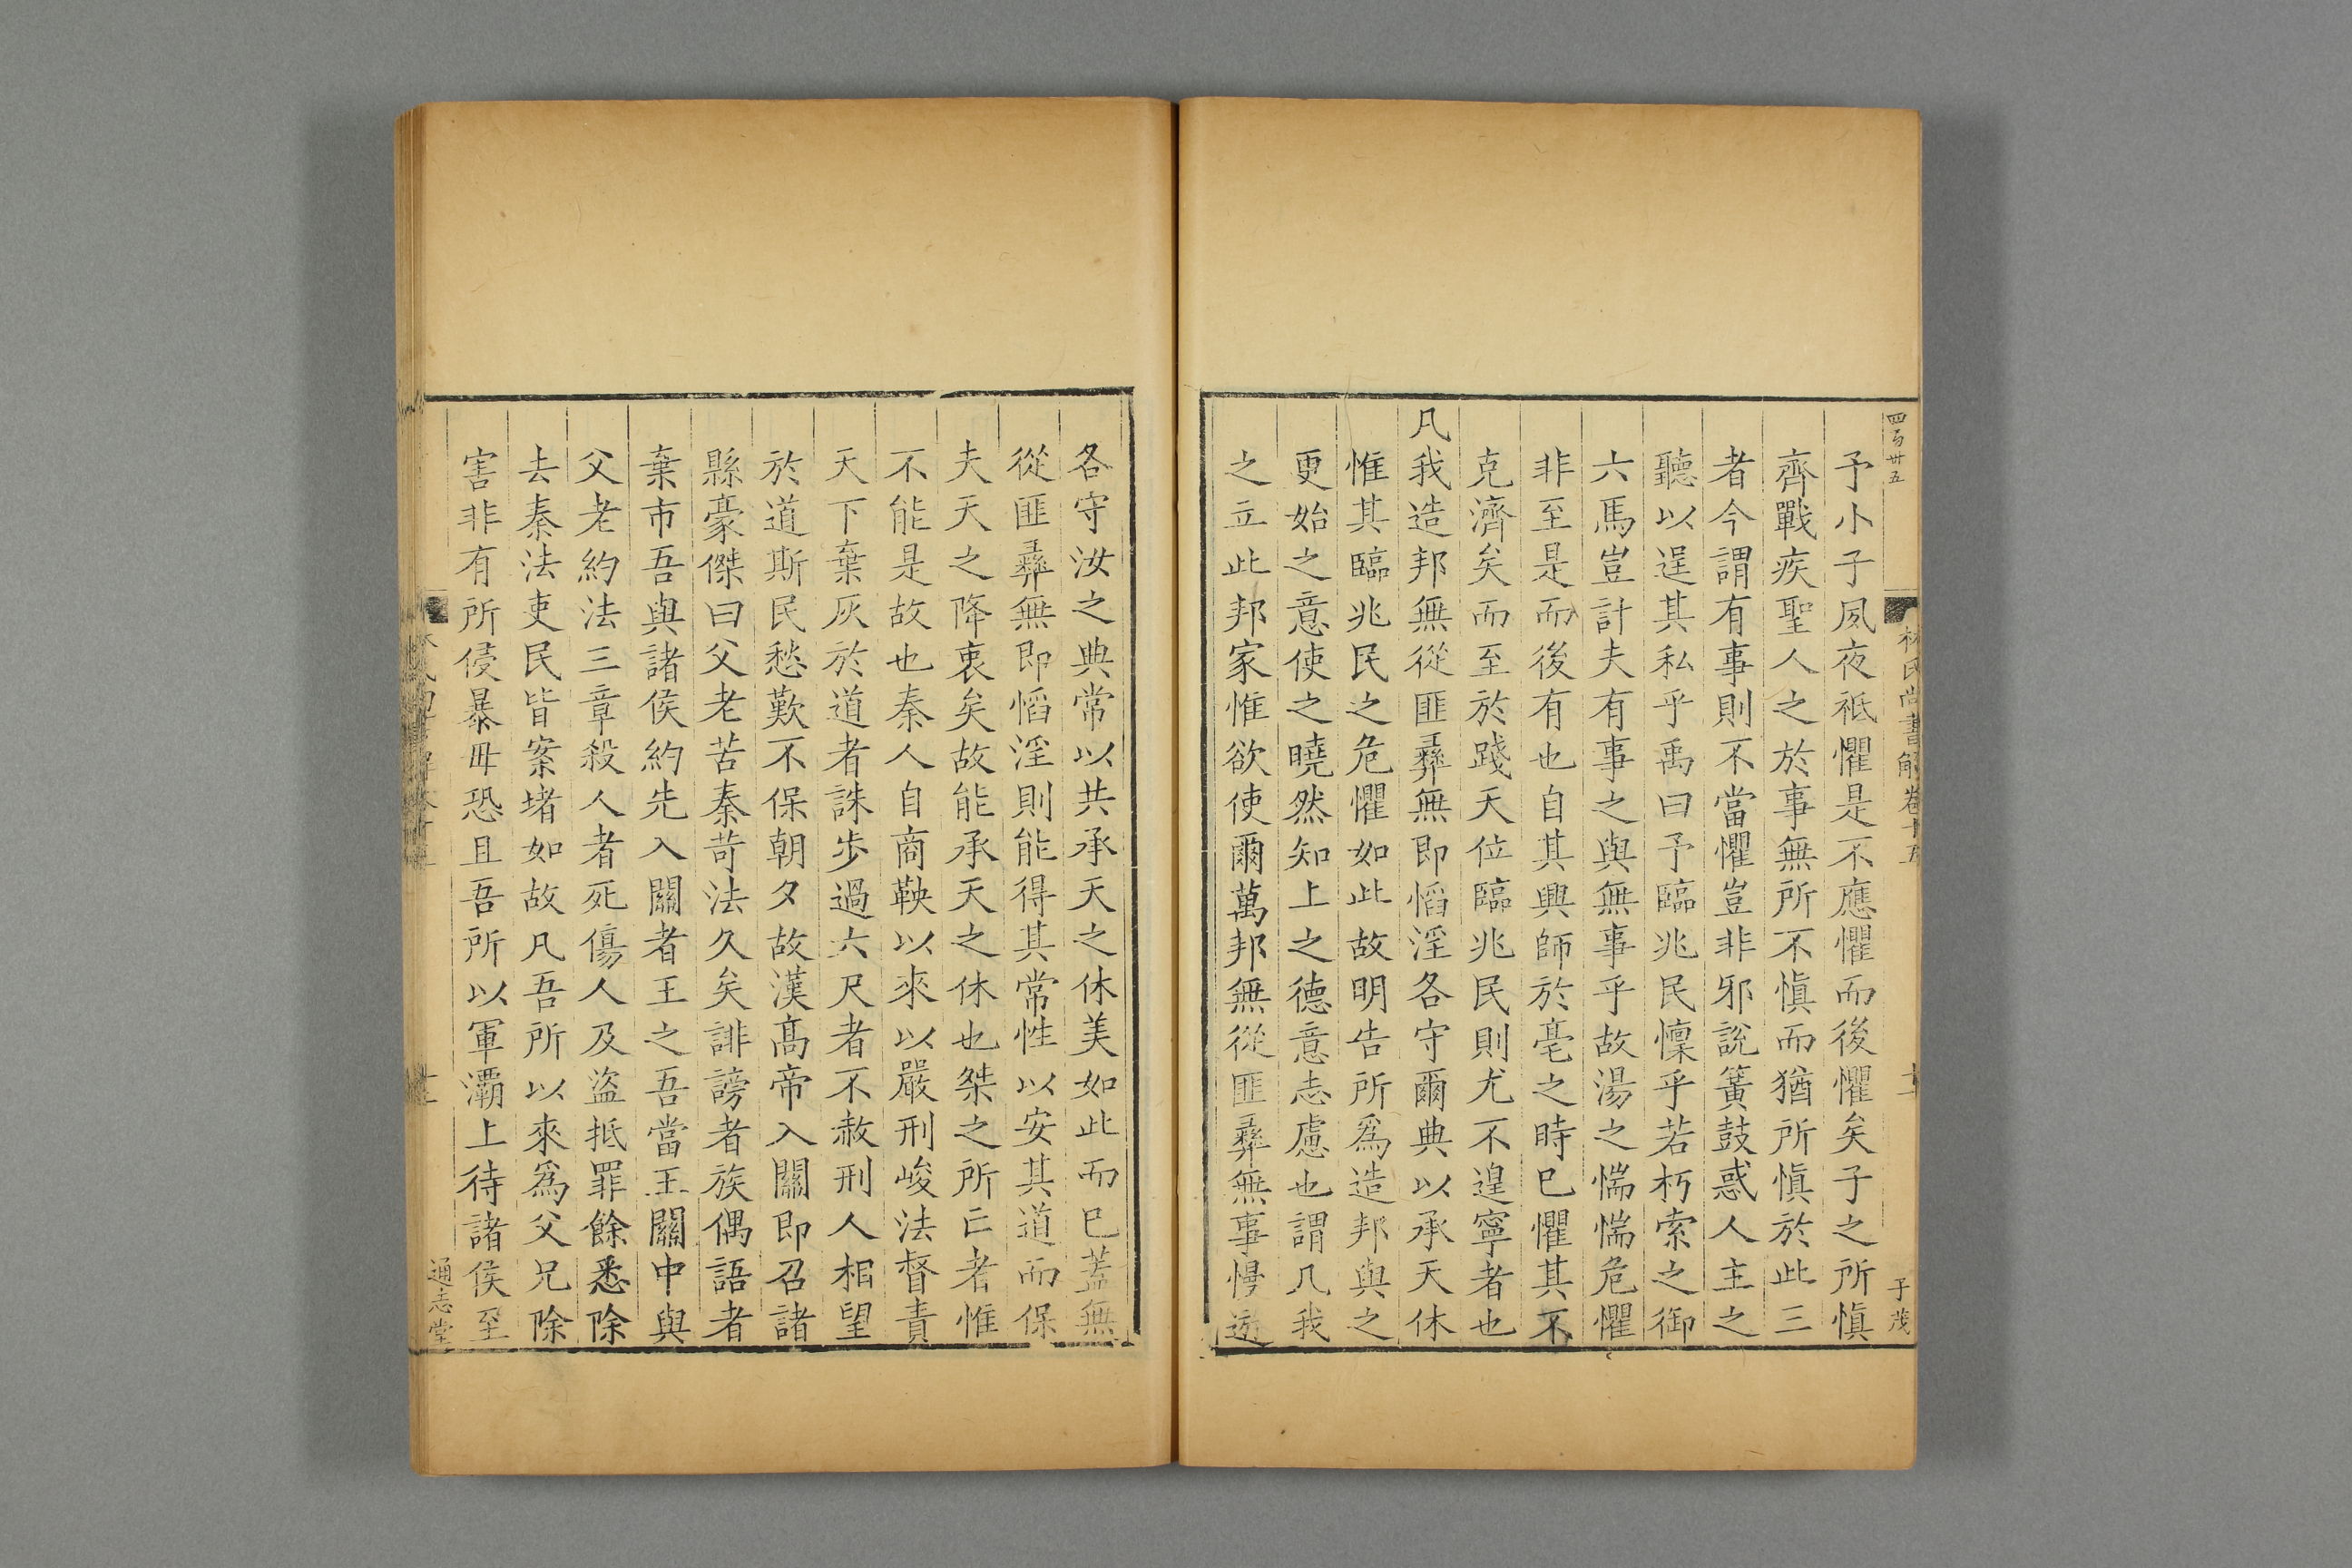 四百卅五
林氏尚書解卷十五
十二
子茂
予小子夙夜祗懼是不應懼而後懼矣子之所愼
齊戰疾聖人之於事無所不愼而猶所愼於此三
者今謂有事則不當懼豈非邪說簧鼓惑人主之
聽以逞其私乎禹曰予臨兆民懍乎若朽索之御
六馬豈計夫有事之與無事乎故湯之惴惴危懼
非至是而後有也自其興師於亳之時已懼其不
克濟矣而至於踐天位臨兆民則尤不遑寧者也
凡我造邦無從匪彝無即慆淫各守爾典以承天休
惟其臨兆民之危懼如此故明告所爲造邦與之
更始之意使之曉然知上之德意志慮也謂凡我
之立此邦家惟欲使爾萬邦無從匪彝無事慢遊
各守汝之典常以共承天之休美如此而已蓋無
從匪彝無即慆淫則能得其常性以安其道而保
夫天之降衷矣故能承天之休也桀之所亡者惟
不能是故也秦人自商鞅以來以嚴刑峻法督責
天下棄灰於道者誅步過六尺者不赦刑人相望
於道斯民愁歎不保朝夕故漢高帝入關即召諸
縣豪傑曰父老苦秦苛法久矣誹謗者族偶語者
棄市吾與諸侯約先入關者王之吾當王關中與
父老約法三章殺人者死傷人及盜抵罪餘悉除
去秦法吏民皆案堵如故凡吾所以來爲父兄除
害非有所侵暴毋恐且吾所以軍灞上待諸侯至
通志堂